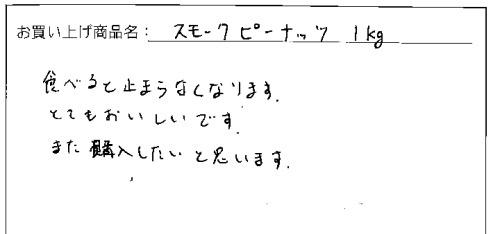 お買い上げ商品名: スモークピーナッツ 1kg
食べると止まらなくなります.
とてもおいしいです.
また購入したいと思います.